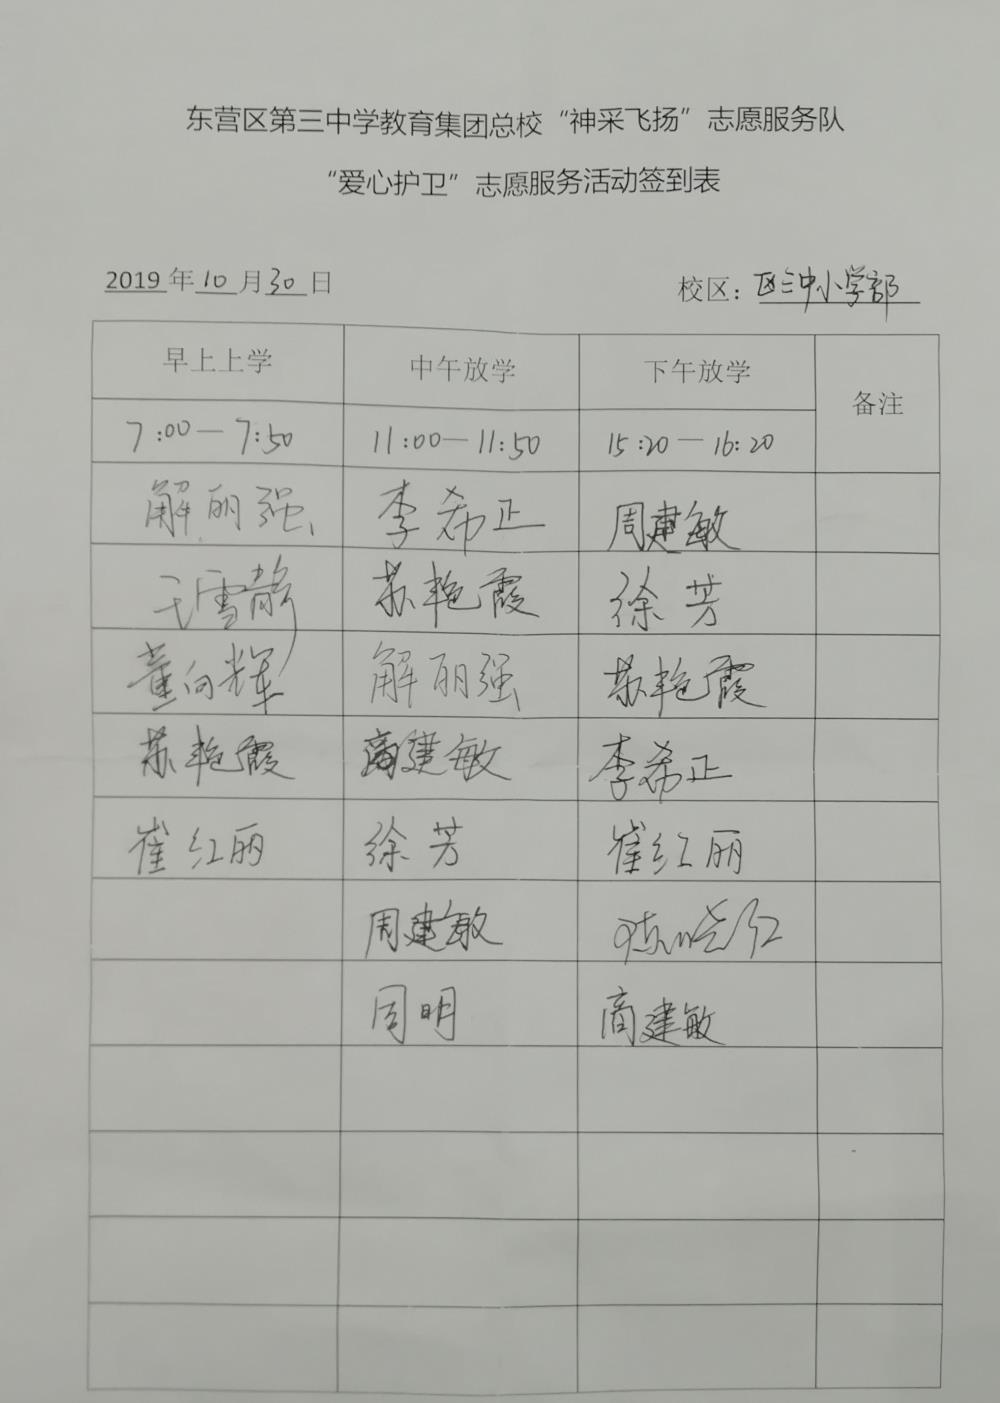 东营区第三中学教育集团总校“神采飞扬”志愿服务队
“爱心护卫”志愿服务活动签到表
2019年10月30日 校区：区三中小学部
早上上学 中午放学 下午放学 备注
7:00—7:50 11:00—11:50 15:20—16:20
解丽强 李希正 周建敏
王雪静 苏艳霞 徐芳
董向辉 解丽强 苏艳霞
苏艳霞 商建敏 李希正
崔红丽 徐芳 崔红丽
周建敏 陈晓红
周明 商建敏